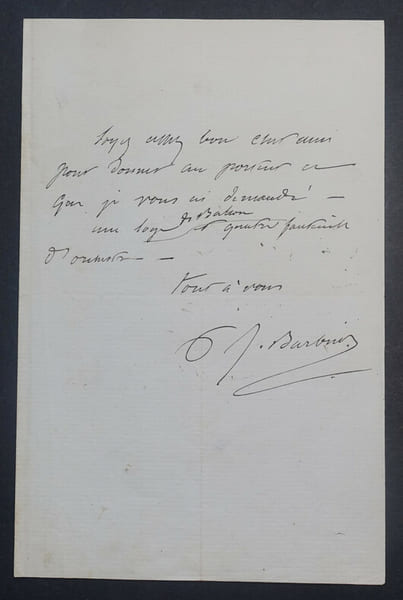 Soyez assez bon cher ami
pour donner au porteur ce
que je vous ai demandé —
une loge de Balcon et quatre fauteuils
d'orchestre —
Tout à vous
J. Barbier